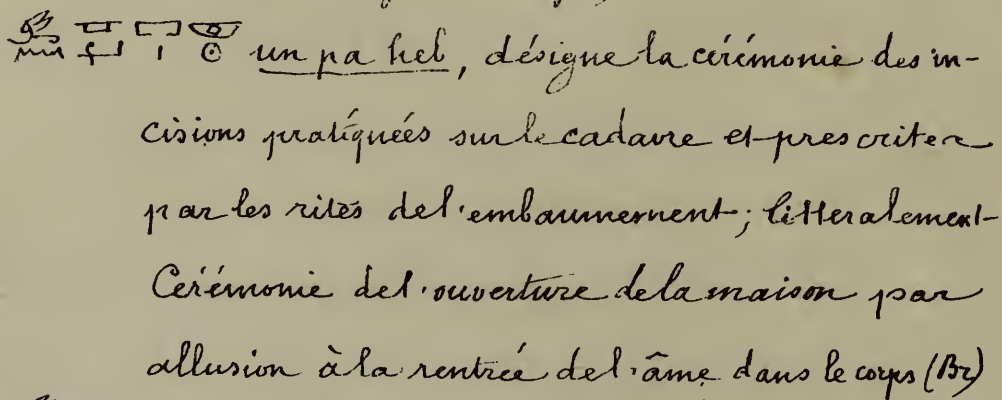 un pa heb, désigne la cérémonie des in-
cisions pratiquées sur le cadavre et prescrites
par les rites de l'embaumement; litteralement
Cérémonie de l'ouverture de la maison par
allusion à la rentrée de l'âme dans le corps (Br)